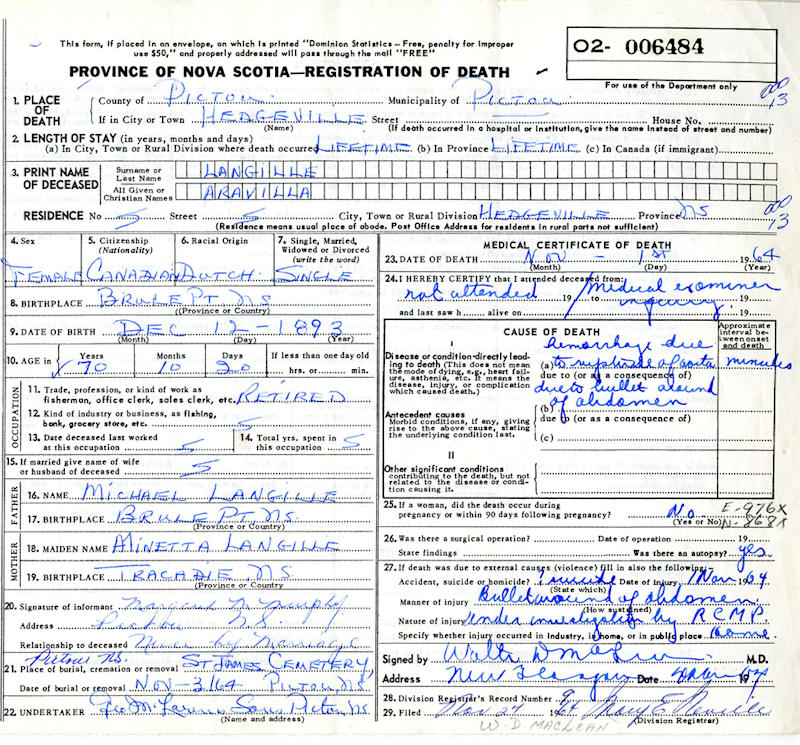 This form, if placed in an envelope, on which is printed "Dominion Statistics – Free, penalty for improper
use $50," and properly addressed will pass through the mail "FREE"
O2- 006484
PROVINCE OF NOVA SCOTIA—REGISTRATION OF DEATH
For use of the Department only
1. PLACE OF DEATH County of PICTOU Municipality of PICTOU
If in City or Town HEDGEVILLE Street House No.
(Name) (If death occurred in a hospital or institution, give the name instead of street and number)
000
13
2. LENGTH OF STAY (in years, months and days)
(a) In City, Town or Rural Division where death occurred LIFETIME (b) In Province LIFETIME (c) In Canada (if immigrant)
3. PRINT NAME OF DECEASED
Surname or Last Name LANGILLE
All Given or Christian Names ARAVILLA
RESIDENCE No 5 Street 5 City, Town or Rural Division HEDGEVILLE Province NS
(Residence means usual place of abode. Post Office Address for residents in rural parts not sufficient)
000
13
4. Sex 5. Citizenship (Nationality) 6. Racial Origin 7. Single, Married, Widowed or Divorced (write the word)
FEMALE CANADIAN DUTCH SINGLE
8. BIRTHPLACE BRULE PT. NS
(Province or Country)
9. DATE OF BIRTH DEC 12 - 1893
(Month) (Day) (Year)
10. AGE in Years Months Days If less than one day old
70 10 20 hrs. or min.
OCCUPATION
11. Trade, profession, or kind of work as
fisherman, office clerk, sales clerk, etc. RETIRED
12. Kind of industry or business, as fishing,
bank, grocery store, etc. 5
13. Date deceased last worked at this occupation 5
14. Total yrs. spent in this occupation 5
15. If married give name of wife
or husband of deceased 5
FATHER
16. NAME MICHAEL LANGILLE
17. BIRTHPLACE BRULE PT. NS.
(Province or Country)
MOTHER
18. MAIDEN NAME MINETTA LANGILLE
19. BIRTHPLACE TRACADIE, NS
(Province or Country
20. Signature of informant Margaret Murphy
Address Pictou NS
Relationship to deceased by Marriage
Pictou NS.
21. Place of burial, cremation or removal ST JAMES CEMETERY,
Date of burial or removal NOV - 3/64 PICTOU, NS.
22. UNDERTAKER Sons Pictou, NS
(Name and address)
MEDICAL CERTIFICATE OF DEATH
23. DATE OF DEATH NOV - 1ST 1964
(Month) (Day) (Year)
24. I HEREBY CERTIFY that I attended deceased from:
not attended 19 / Medical examiner 19
and last saw h alive on inquiry. 19
CAUSE OF DEATH
Approximate interval between onset and death
I
Disease or condition directly leading to death (This does not mean the mode of dying, e.g., heart failure, asthenia, etc. It means the disease, injury, or complication which caused death.)
Hemorrhage due
(a) to rupture of aorta minutes
due to (or as a consequence of)
due to bullet wound
(b) of abdomen
Antecedent causes
Morbid conditions, if any, giving rise to the above cause, stating the underlying condition last.
due to (or as a consequence of)
(c)
II
Other significant conditions
contributing to the death, but not related to the disease or condition causing it.
25. If a woman, did the death occur during
pregnancy or within 90 days following pregnancy? No
(Yes or No)
E-976X
N-868X
26. Was there a surgical operation? Date of operation 19
State findings Was there an autopsy? yes
27. If death was due to external causes (violence) fill in also the following:-
Accident, suicide or homicide? ? suicide Date of injury 1 Nov 1964
(State which)
Manner of injury Bullet wound of abdomen
(How sustained)
Nature of injury Under investigation by RCMP
Specify whether injury occurred in Industry, in home, or in public place home
Signed by M.D.
Address New Glasgow Date 1964
28. Division Registrar's Record Number
29. Filed Nov 27 1964 Mary E Neville
(Division Registrar)
W. D. MACLEAN